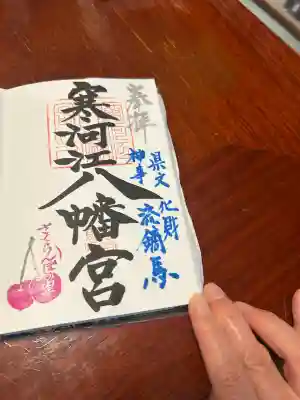 奉拝
県文化財
神事 流鏑馬
寒河江八幡宮
さくらんぼの里